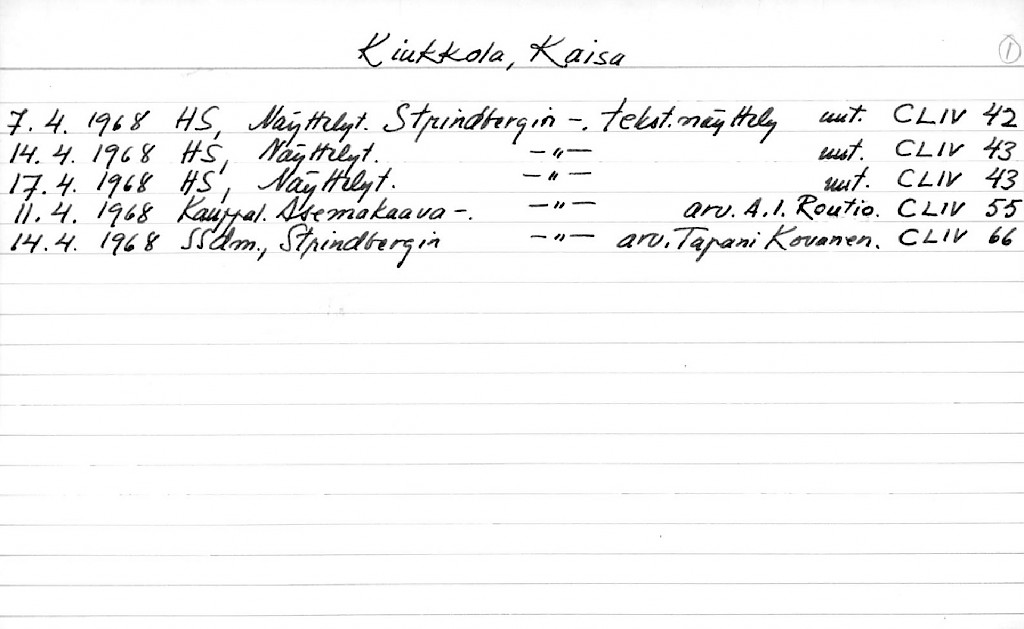 Kiukkola, Kaisa 1
7. 4. 1968 HS, Näyttelyt. Strindbergin -. tekst.näyttely uut. CLIV 42
14. 4. 1968 HS, Näyttelyt. -"- uut. CLIV 43
17. 4. 1968 HS, Näyttelyt. -"- uut. CLIV 43
11. 4. 1968 Kauppal. Asemakaava -. -"- arv. A.I. Routio. CLIV 55
14. 4. 1968 SSdm., Strindbergin -"- arv. Tapani Kovanen. CLIV 66